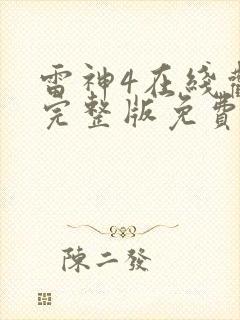 雷神4在綫觀
完整版免費
陳二發